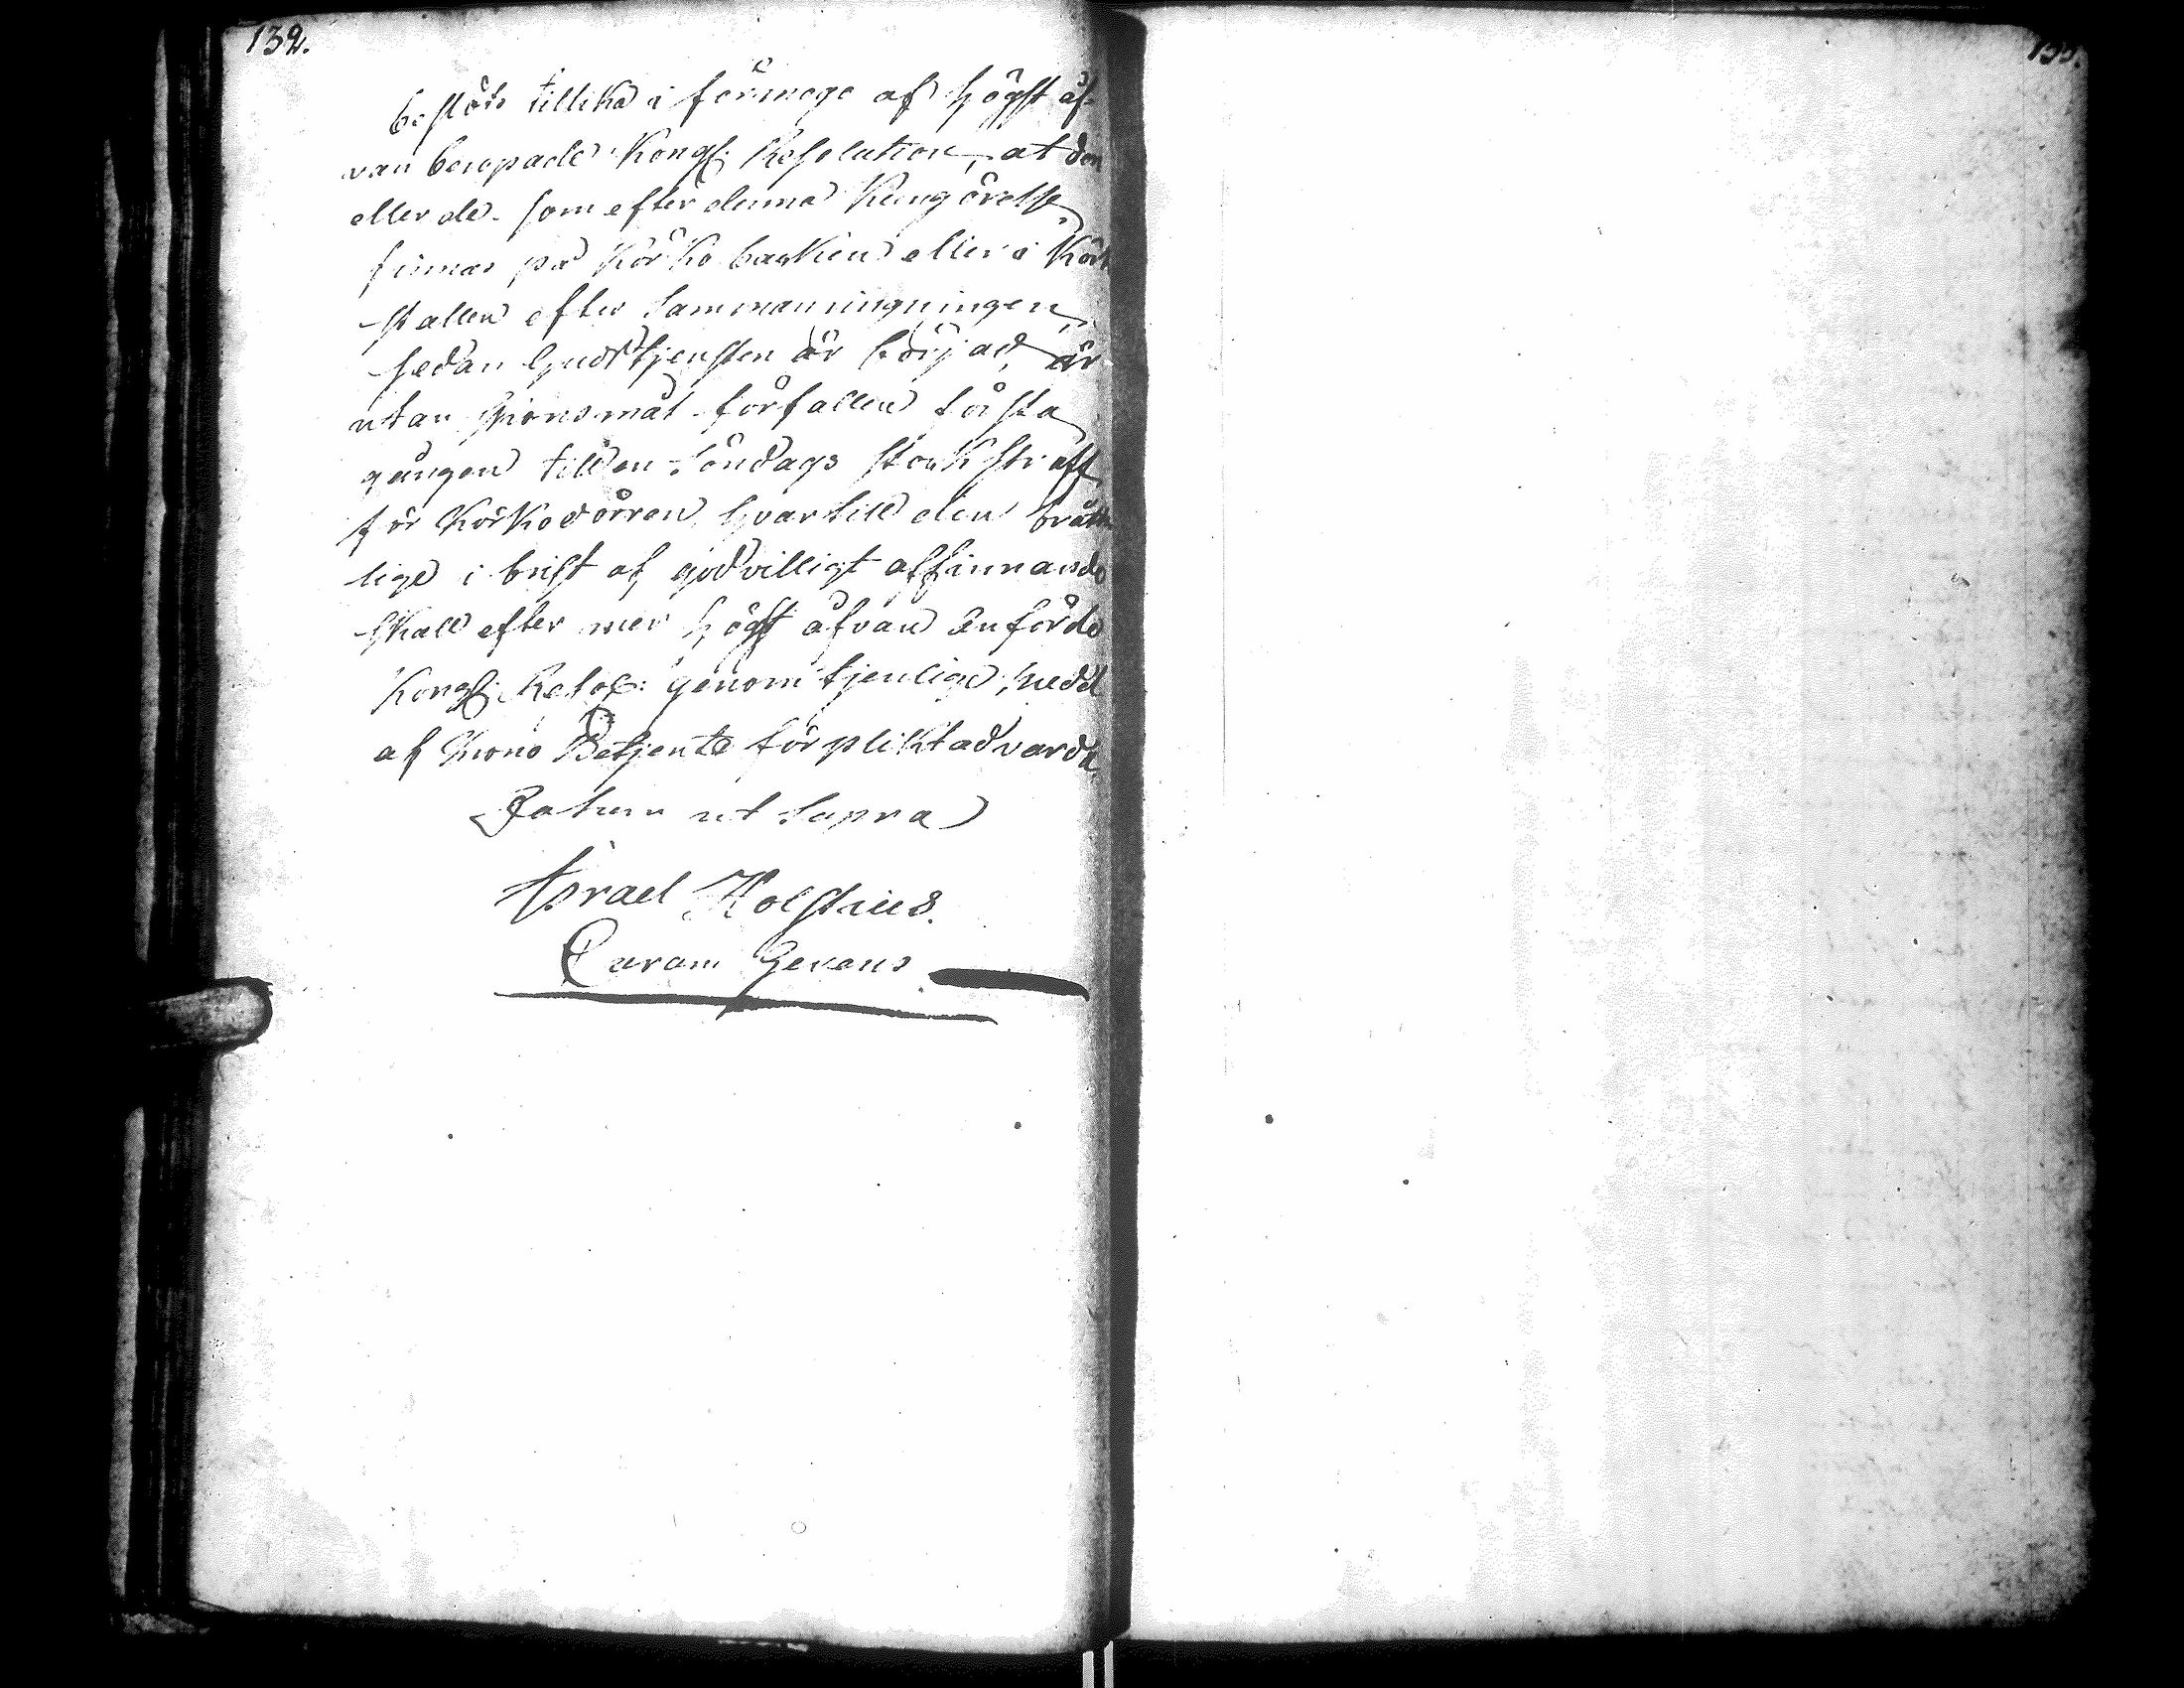 132.
beslöts tillika i förmoge af högst åf-
van beropade Kongl: Resolution, at den
eller de som efter denna Kungörelse
finnas på Körkobacken eller i Körk
stallen efter Sammanringningen
sedan Gudstjensten är börjad, är
utan Gionsmål förfallen första
gången till en Söndags stockstraff
för Körkodörren, hvartill den brått
lige i brist af godvilligt affinnande
skall efter mer högst åfvan anförde
Kongl: Resol: genom tjenlige medel
af Crono Betjente förpliktad varda
Datum ut Supra
Israel Holstius.
Curam Gerens
133.